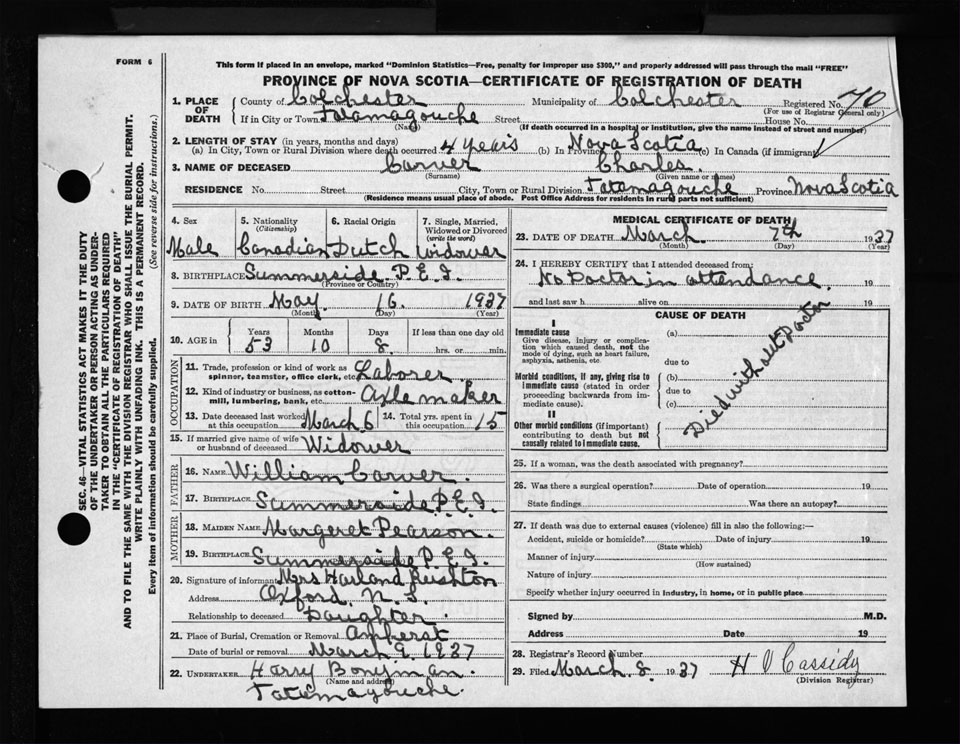 FORM 6
This form if placed in an envelope, marked "Dominion Statistics—Free, penalty for improper use $300," and properly addressed will pass through the mail "FREE"
PROVINCE OF NOVA SCOTIA—CERTIFICATE OF REGISTRATION OF DEATH
1. PLACE OF DEATH County of Colchester Municipality of Colchester Registered No. 70
(For use of Registrar General only)
If in City or Town Tatamagouche Street House No.
(Name) (If death occurred in a hospital or institution, give the name instead of street and number)
2. LENGTH OF STAY (in years, months and days)
(a) In City, Town or Rural Division where death occurred 4 years (b) In Province Nova Scotia (c) In Canada (if immigrant)
3. NAME OF DECEASED Carver Charles.
(Surname) (Given name or names)
RESIDENCE No. Street City, Town or Rural Division Tatamagouche Province Nova Scotia
(Residence means usual place of abode. Post Office Address for residents in rural parts not sufficient)
4. Sex 5. Nationality 6. Racial Origin 7. Single, Married, Widowed or Divorced
(Citizenship) (write the word)
Male Canadian Dutch Widower
8. BIRTHPLACE Summerside P.E.I.
(Province or Country)
9. DATE OF BIRTH May 16. 1937
(Month) (Day) (Year)
10. AGE in Years Months Days If less than one day old
53 10 8. hrs. or min.
OCCUPATION
11. Trade, profession or kind of work as spinner, teamster, office clerk, etc. Laborer.
12. Kind of industry or business, as cotton-mill, lumbering, bank, etc. Axle maker
13. Date deceased last worked at this occupation March 6 14. Total yrs. spent in this occupation 15
15. If married give name of wife or husband of deceased Widower
FATHER
16. NAME William Carver.
17. BIRTHPLACE Summerside P.E.I.
MOTHER
18. MAIDEN NAME Margeret Pearson.
19. BIRTHPLACE Summerside P.E.I.
20. Signature of informant Mrs Harland Rushton
Address Oxford. N. S.
Relationship to deceased Daughter.
21. Place of Burial, Cremation or Removal Amherst
Date of burial or removal March 9. 1937
22. UNDERTAKER Harry Bonyman.
(Name and address)
Tatamagouche.
MEDICAL CERTIFICATE OF DEATH
23. DATE OF DEATH March. 7th 1937
(Month) (Day) (Year)
24. I HEREBY CERTIFY that I attended deceased from:
No Doctor in attendance. 19
and last saw h alive on 19
CAUSE OF DEATH
I
Immediate cause (a)
Give disease, injury or complication which caused death, not the mode of dying, such as heart failure, asphyxia, asthenia, etc.
due to
Morbid conditions, if any, giving rise to immediate cause (stated in order proceeding backwards from immediate cause). (b)
due to
(c)
II
Other morbid conditions (if important) contributing to death but not causally related to immediate cause.
Died without Doctor
25. If a woman, was the death associated with pregnancy?
26. Was there a surgical operation? Date of operation 19
State findings Was there an autopsy?
27. If death was due to external causes (violence) fill in also the following:—
Accident, suicide or homicide? Date of injury 19
(State which)
Manner of injury
(How sustained)
Nature of injury
Specify whether injury occurred in industry, in home, or in public place
Signed by M.D.
Address Date 19
28. Registrar's Record Number
29. Filed March. 8. 1937 H V Cassidy
(Division Registrar)
SEC. 46—VITAL STATISTICS ACT MAKES IT THE DUTY
OF THE UNDERTAKER OR PERSON ACTING AS UNDER-
TAKER TO OBTAIN ALL THE PARTICULARS REQUIRED
IN THE "CERTIFICATE OF REGISTRATION OF DEATH"
AND TO FILE THE SAME WITH THE DIVISION REGISTRAR WHO SHALL ISSUE THE BURIAL PERMIT.
WRITE PLAINLY WITH UNFADING INK. THIS IS A PERMANENT RECORD.
Every item of information should be carefully supplied. (See reverse side for instructions.)